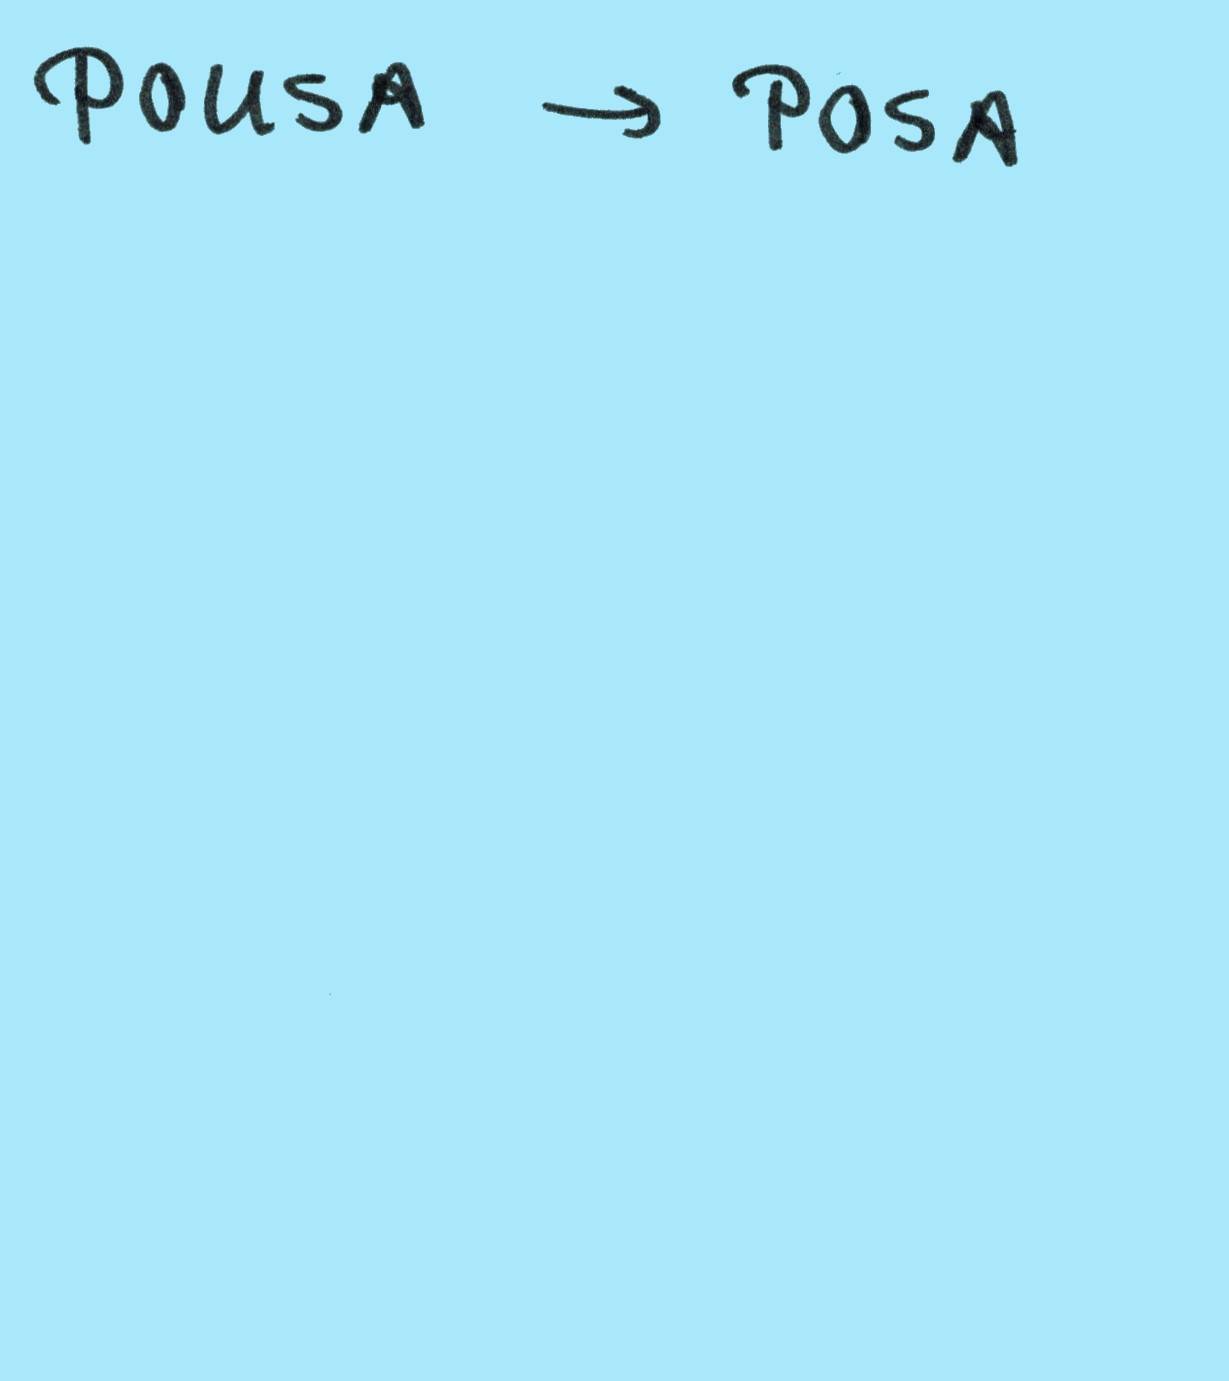 POUSA → POSA